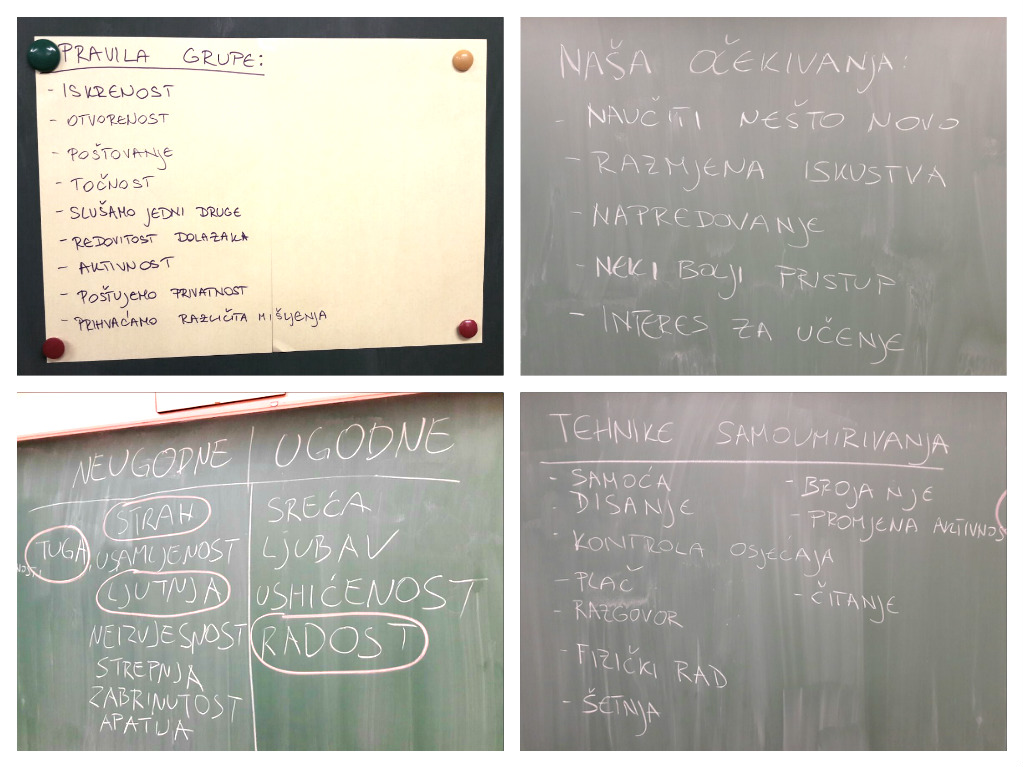 PRAVILA GRUPE:
- ISKRENOST
- OTVORENOST
- POŠTOVANJE
- TOČNOST
- SLUŠAMO JEDNI DRUGE
- REDOVITOST DOLAZAKA
- AKTIVNOST
- POŠTUJEMO PRIVATNOST
- PRIHVAĆAMO RAZLIČITA MIŠLJENJA
NAŠA OČEKIVANJA:
- NAUČITI NEŠTO NOVO
- RAZMJENA ISKUSTVA
- NAPREDOVANJE
- NEKI BOLJI PRISTUP
- INTERES ZA UČENJE
NEUGODNE
STRAH
TUGA, USAMLJENOST
LJUTNJA
NEIZVJESNOST
STREPNJA
ZABRINUTOST
APATIJA
UGODNE
SREĆA
LJUBAV
USHIĆENOST
RADOST
TEHNIKE SAMOUMIRIVANJA
- SAMOĆA
- DISANJE
- KONTROLA OSJEĆAJA
- PLAČ
- RAZGOVOR
- FIZIČKI RAD
- ŠETNJA
- BROJANJE
- PROMJENA AKTIVNOS
- ČITANJE